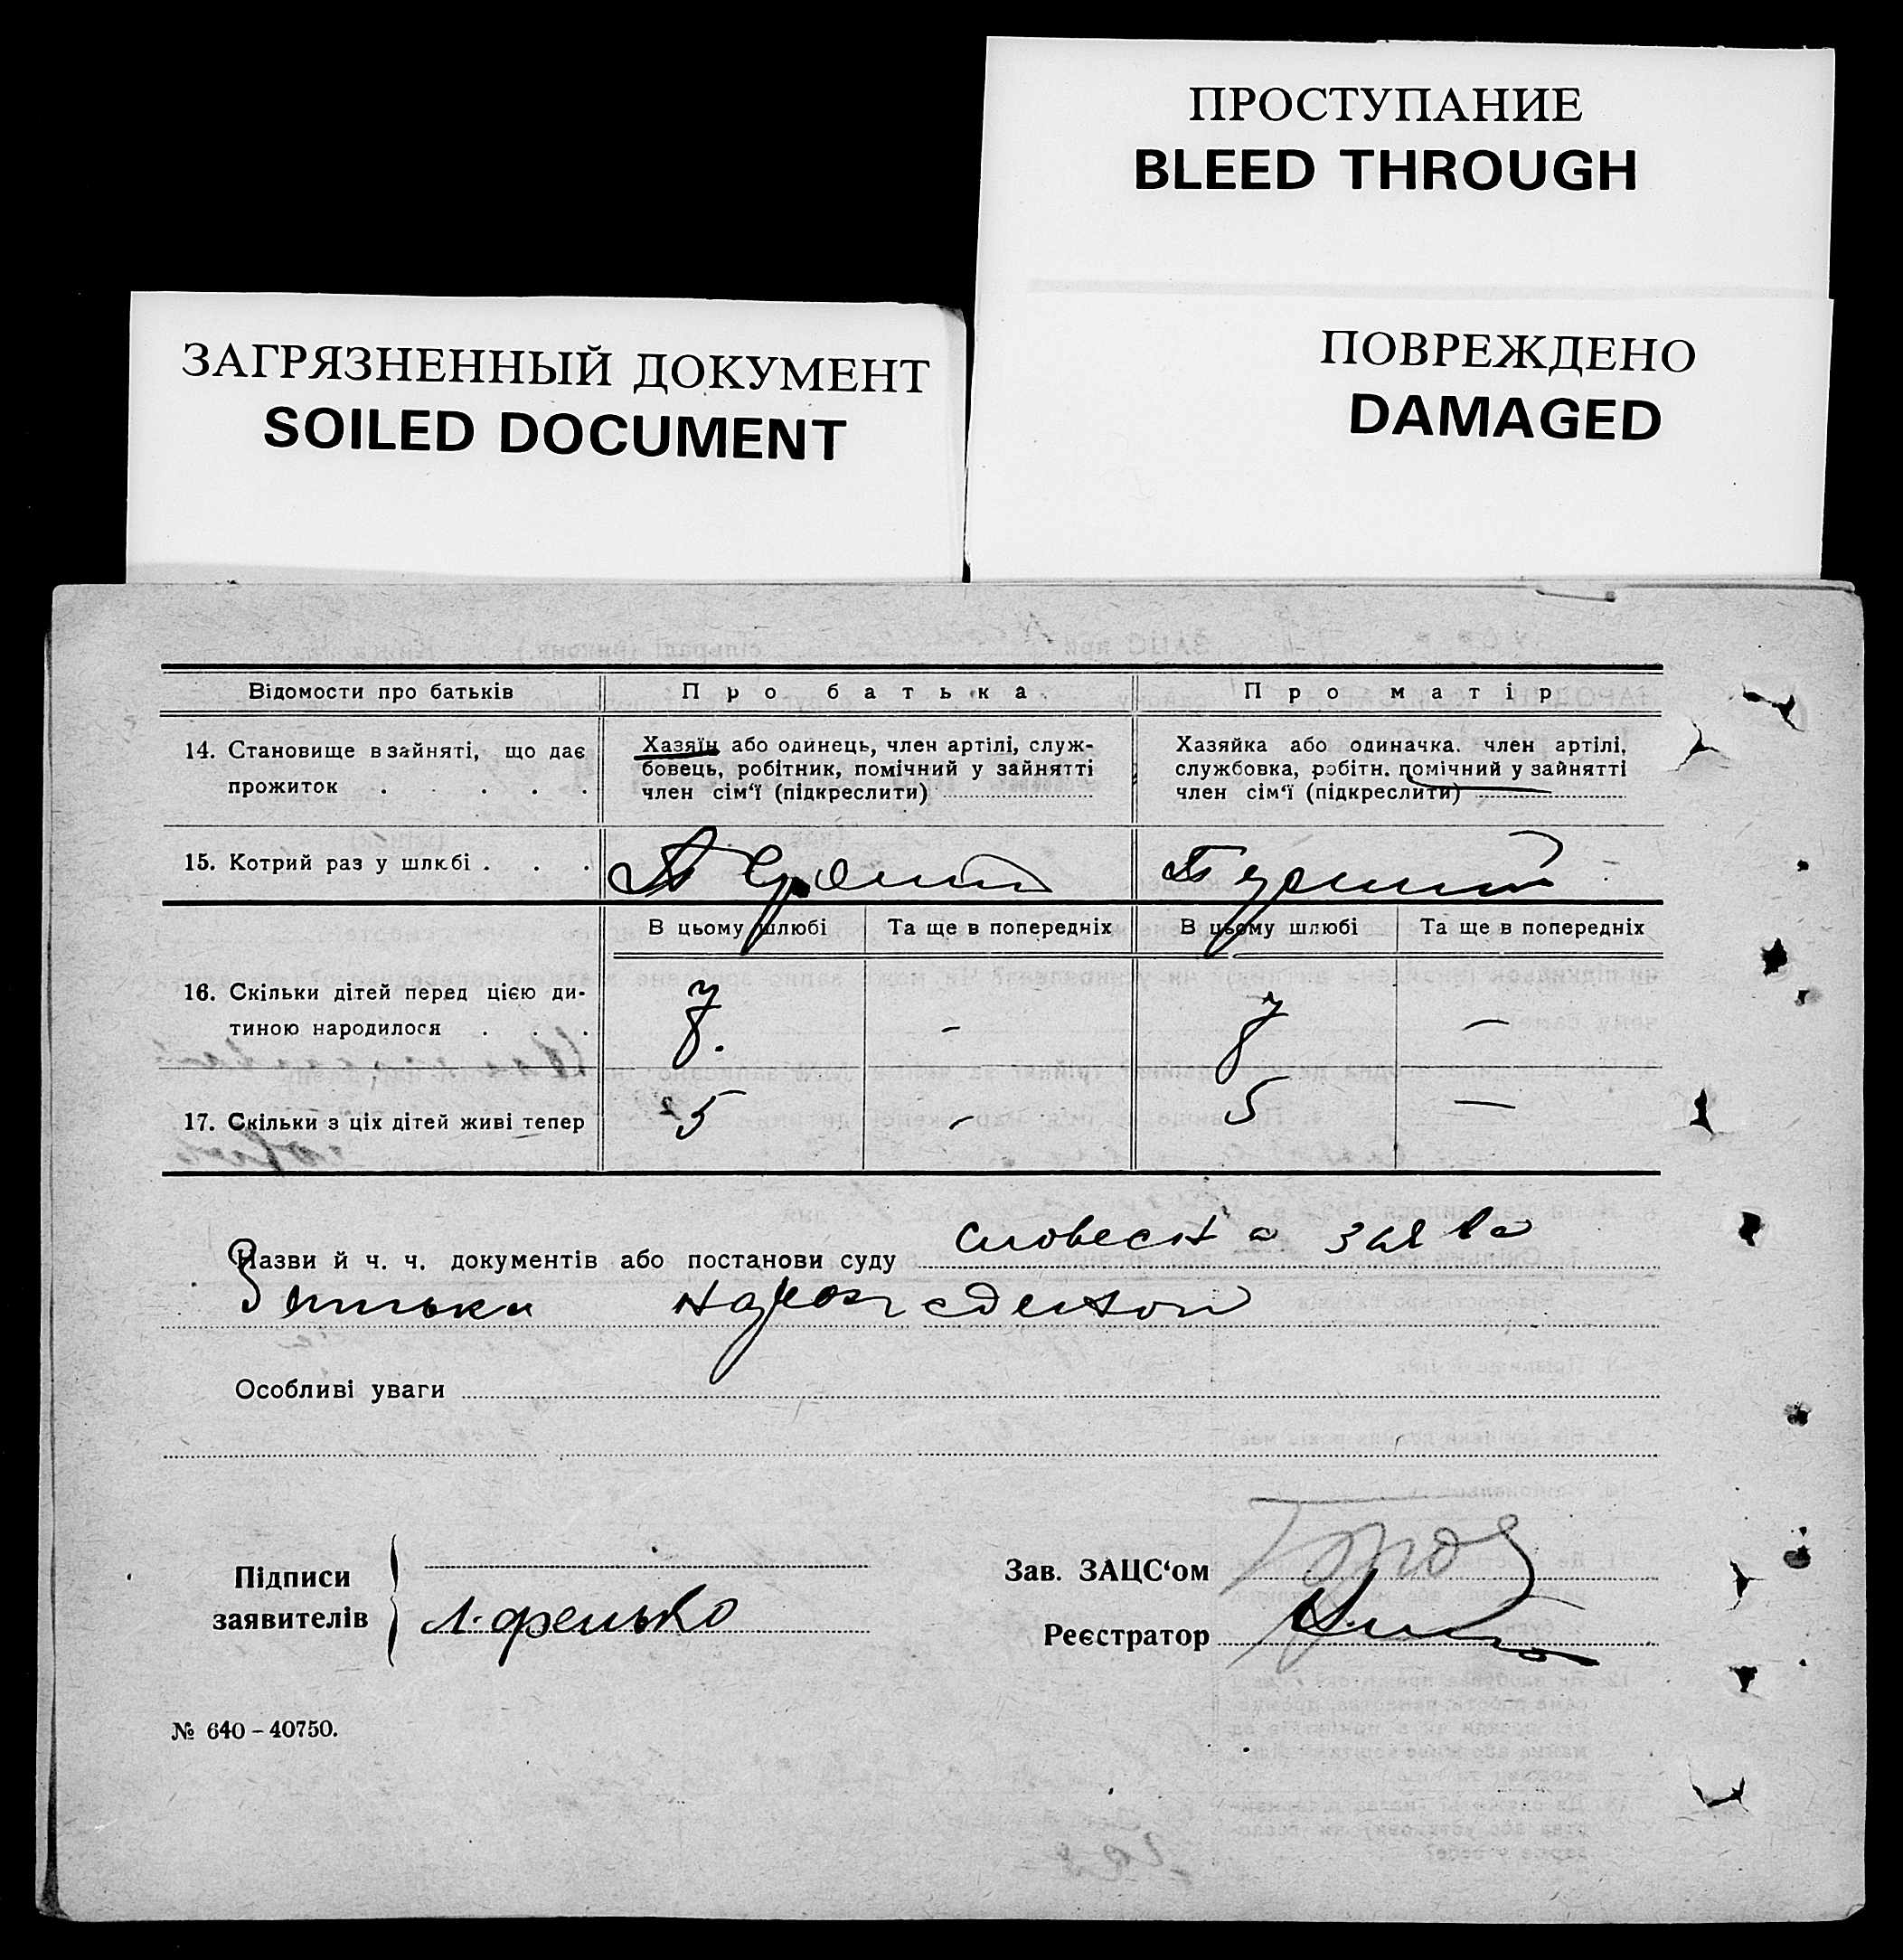 ПРОСТУПАНИЕ
BLEED THROUGH
ПОВРЕЖДЕНО
DAMAGED
ЗАГРЯЗНЕННЫЙ ДОКУМЕНТ
SOILED DOCUMENT
Відомости про батьків Про батька Про матір
14. Становище в зайняті, що дає прожиток
Хазяїн або одинець, член артілі, служ-
бовець, робітник, помічний у зайнятті
член сім‘ї (підкреслити)
Хазяйка або одиначка. член артілі,
службовка, робітн. помічний у зайнятті
член сім‘ї (підкреслити)
15. Котрий раз у шлюбі . . .
В цьому шлюбі Та ще в попередніх В цьому шлюбі Та ще в попередніх
16. Скільки дітей перед цією ди-
тиною народилося . . . 7. - 7 -
17. Скільки з ціх дітей живі тепер 5 - 5 -
Назви й ч. ч. документів або постанови суду словесна заява
батька
Особливі уваги
Підписи
заявителів
Зав. ЗАЦС‘ом
Реєстратор
№ 640-40750.